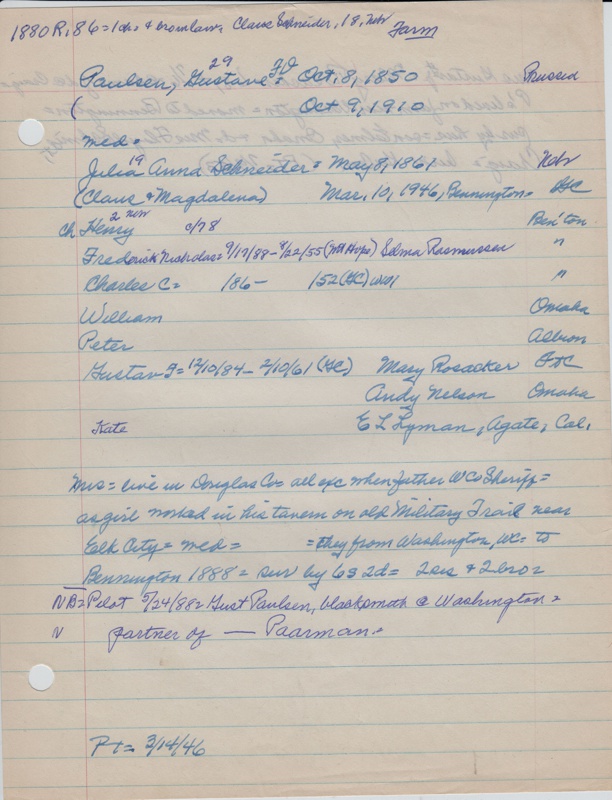 1880 R, 86 = 1 da. & brom law. Claus Schneider, 18, Neb Farm
29
Paulsen, Gustave F = Oct. 8, 1850 Prussia
( Oct 9, 1910
med =
19
Julia Anna Schneider = May 8, 1861 Neb
(Claus & Magdalena) Mar. 10, 1946, Bennington =
ch Henry 2 Neb 0/78 Ben'ton
Frederick Nicholas = 9/17/88 - 8/22/55 (Mt Hope) Selma Rasmussen "
Charles C = 186 - 152 (GC) WWI "
William Omaha
Peter Albion
Gustav F = 12/10/84 - 2/10/61 (GC) Mary Rosacker
Andy Nelson Omaha
Kate E L Lyman, Agate, Cal.
Mrs = live in Douglas Co = all exc when father WCo Sheriff =
as girl worked in his tavern on old Military Trail near
Elk City = med = = they from Washington, WC = to
Bennington 1888 = sur by 6s 2d = 2sis & 2bro =
NB = Pilot 5/24/88 = Gust Paulsen, blacksmith @ Washington =
N partner of — Paarman =
PT = 3/14/46